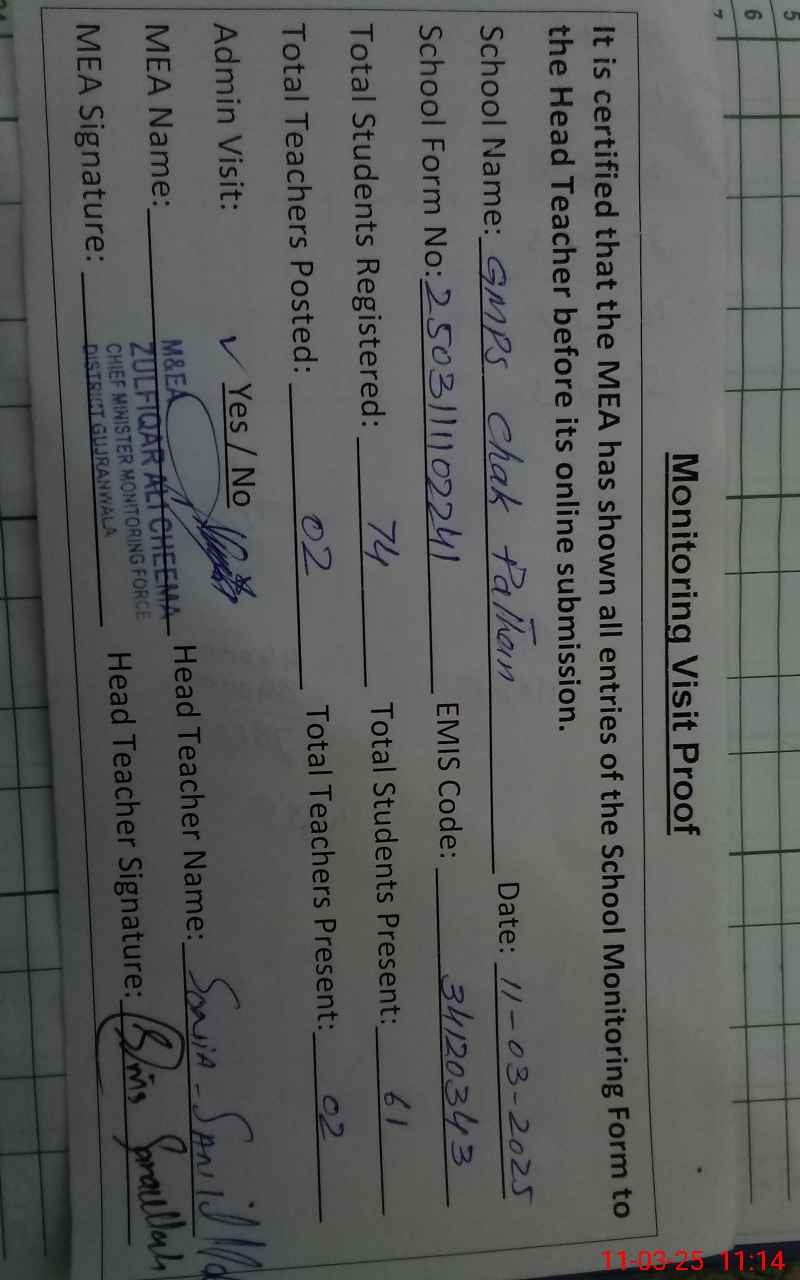 5
6
7
Monitoring Visit Proof
It is certified that the MEA has shown all entries of the School Monitoring Form to
the Head Teacher before its online submission.
School Name: GMPS Chak Pathan Date: 11-03-2025
School Form No: 2503111102241 EMIS Code: 34120343
Total Students Registered: 74 Total Students Present: 61
Total Teachers Posted: 02 Total Teachers Present: 02
Admin Visit: ✓ Yes / No
MEA Name: Head Teacher Name: Sonia
M&EA
ZULFIQAR ALI CHEEMA
CHIEF MINISTER MONITORING FORCE
DISTRICT GUJRANWALA
MEA Signature: Head Teacher Signature:
11-03-25 11:14